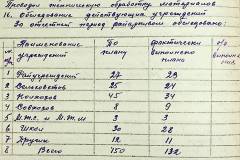 Проводил техническую обработку материалов
16. Обследование действующих учреждений
За отчетный период райархивом обследовано:
№ Наименование учреждений По плану фактически выполнено плана % выполнения
1 Райучреждений 27 29
2 Сельсоветов 25 24
3 Колхозов 45 34
4 Совхозов 8 9
5 М.Т.С. и М.Ж.М 3 3
6 Школ 30 28
7 Других 12 11
8 Всего 150 132